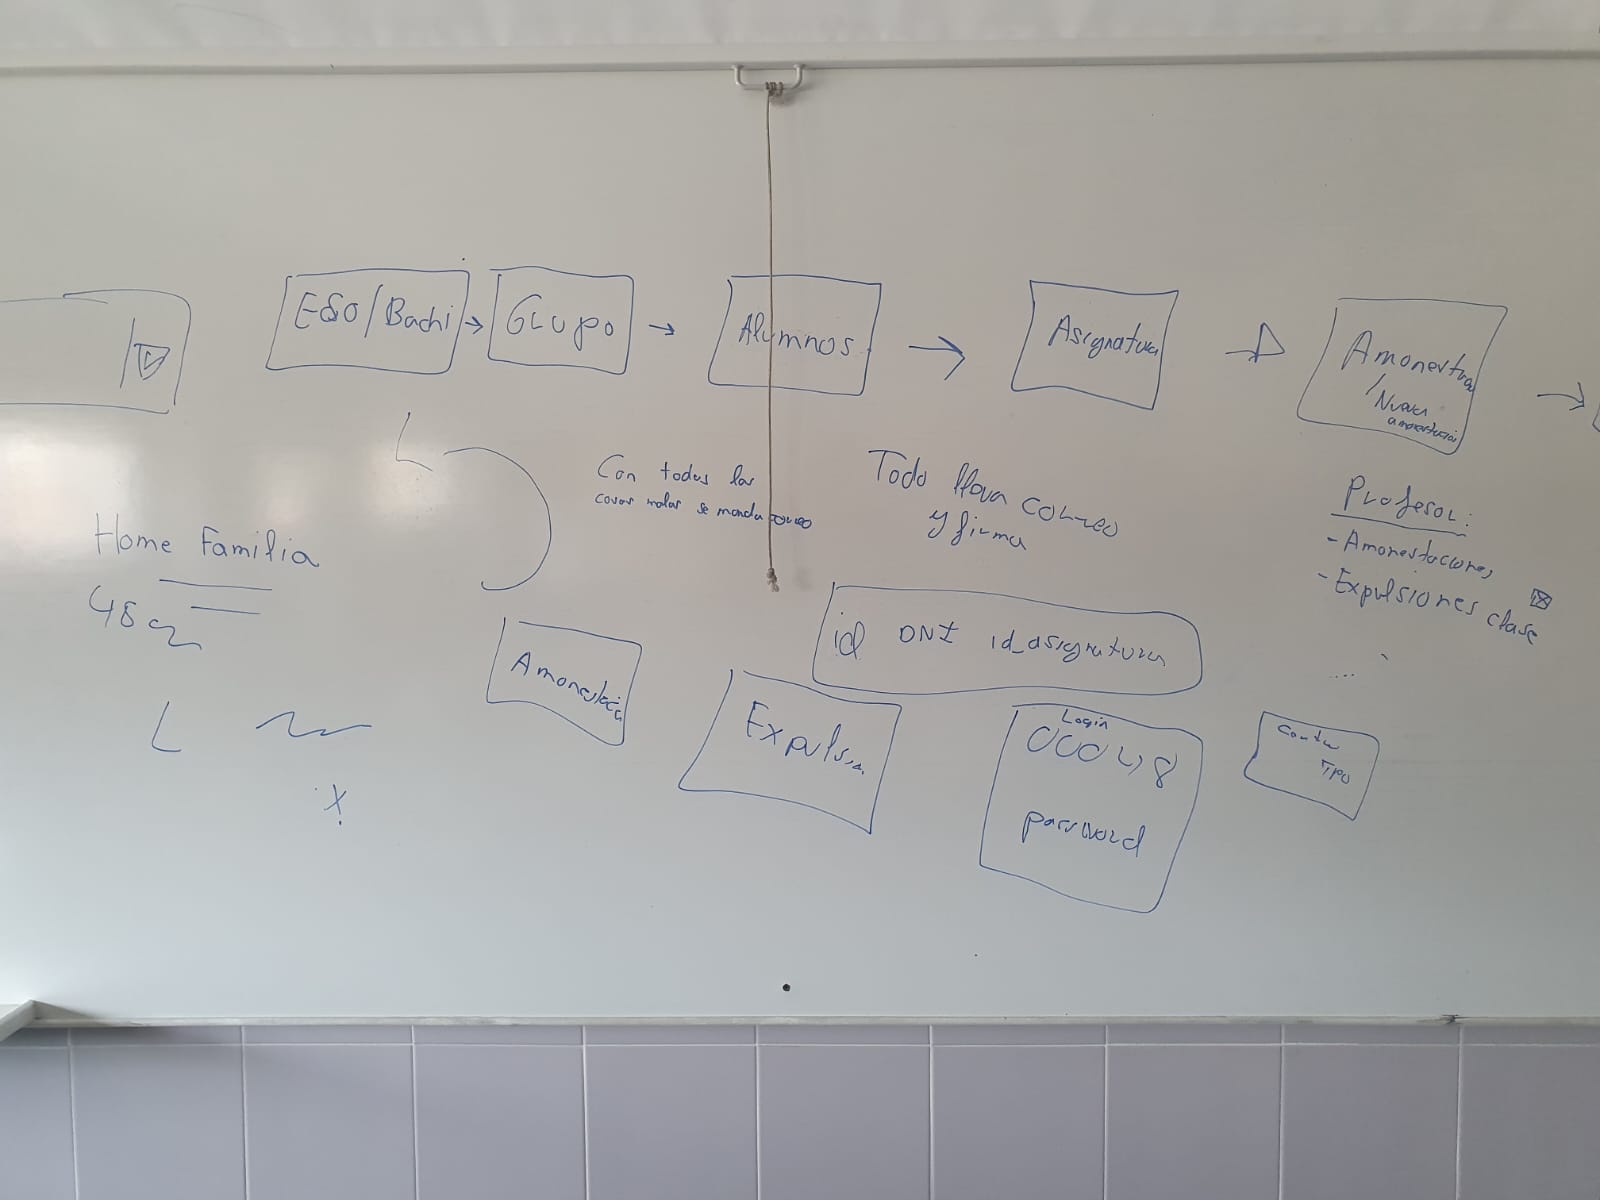 ESO/Bachi
Grupo
Alumnos
Asignatura
Amonesta
Nueva
amonestacion
Con todas las
cosas malas se manda correo
Todo lleva correo
y firma
Profesor:
- Amonestaciones
- Expulsiones clase
...
Home Familia
id DNI id_asignatura
Amonestació
Expulsio
Login
password
Tipo